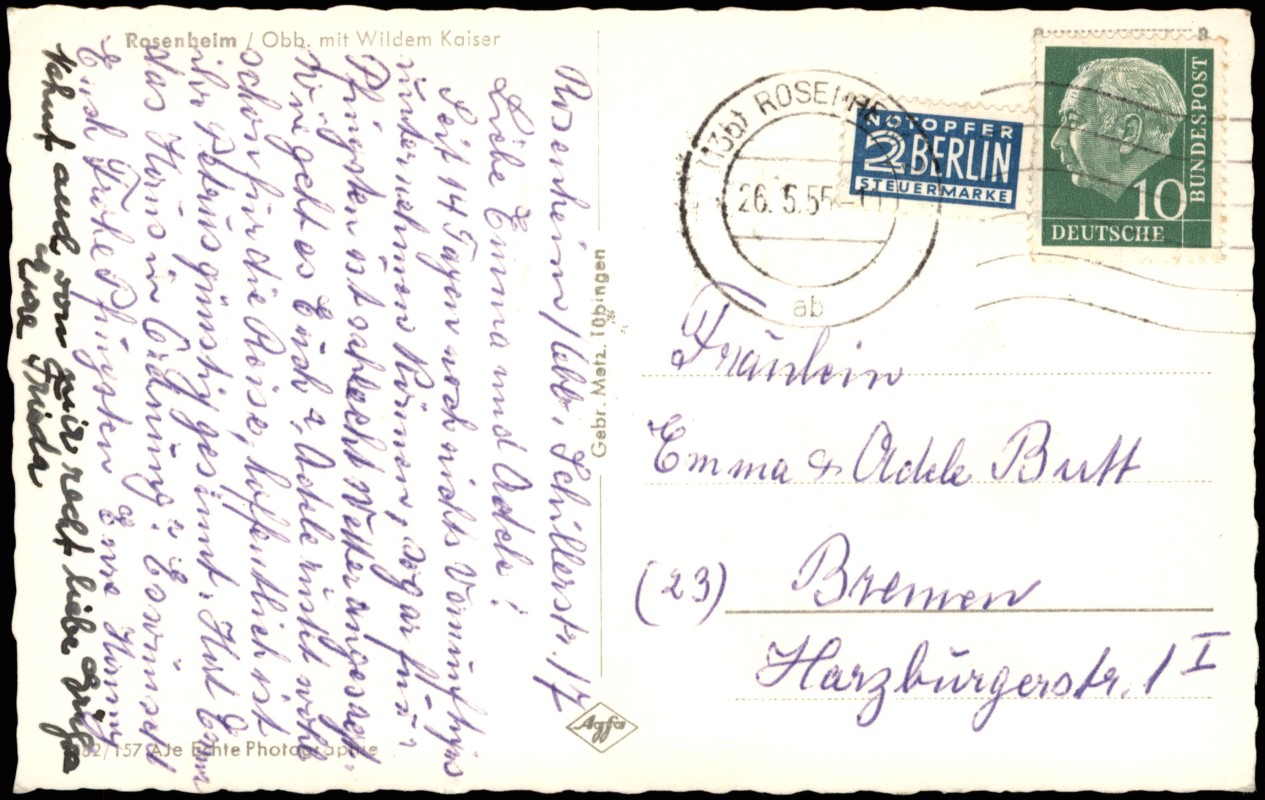 Rosenheim / Obb. mit Wildem Kaiser
Rosenheim/Obb. Schillerstr. 17
Liebe Emma und Adele!
Seit 14 Tagen noch nichts Vernünftiges
unternehmen können, sogar für
Pfingsten ist schlecht Wetter angesagt.
Wie geht es Euch? Adele rüstet wohl
schon für die Reise, hoffentlich ist
ihr Petrus günstig gesinnt. Hat Emmy
das Haus in Ordnung? Es wünscht
Euch Frohe Pfingsten Eure Henny
und von mir recht liebe Grüße
Eure Frieda
82/157 AJe Echte Photographie
Gebr. Metz, Tübingen
Agfa
(13b) ROSENHE
26.5.55
ab
NOTOPFER
2 BERLIN
STEUERMARKE
10
BUNDESPOST
DEUTSCHE
Fräulein
Emma & Adele Butt
(23) Bremen
Harzburgerstr. 1 I